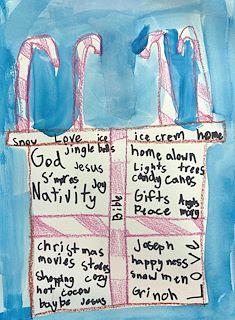 Snow Love ice ice crem home
jingle bells
God Jesus
S'mores
joy
Nativity
Bible
home alown
Lights trees
candy canes
Gifts Angels
Peace mary
christmas
movies
shopping cozy
hot cocow
baybe Jesus
Joseph
happyness
snow men
Grinch